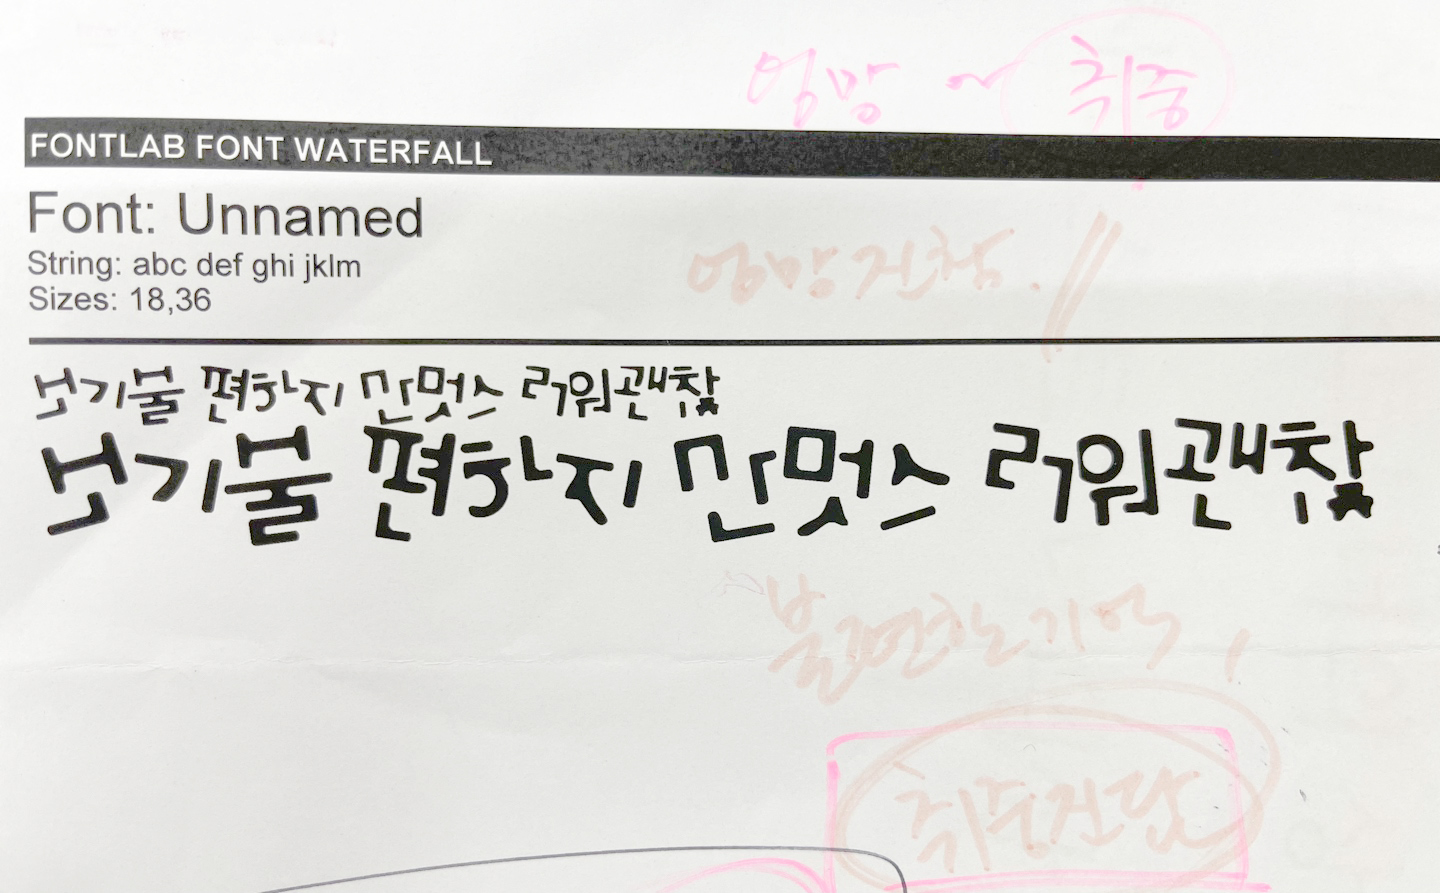 엉망 ~ 취중
FONTLAB FONT WATERFALL
Font: Unnamed
String: abc def ghi jklm
Sizes: 18,36
엉망진창. //
보기불 편하지 만멋스 러워괜찮
보기불 편하지 만멋스 러워괜찮
불편한기억,
취중진담